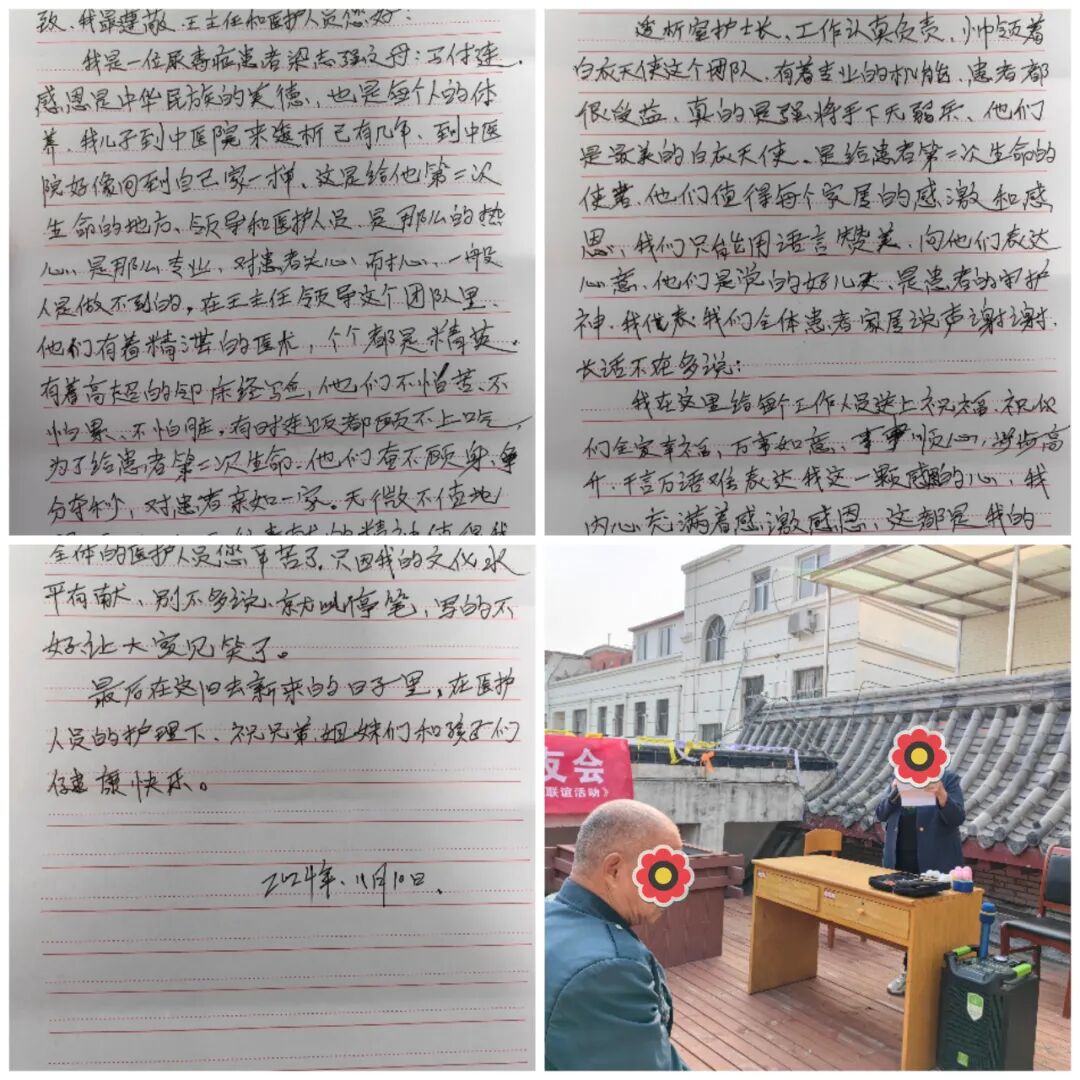 致、我最尊敬、王主任和医护人员您好：
我是一位尿毒症患者梁志强父母：马付连，
感恩是中华民族的美德、也是每个人的体
养、我儿子到中医院来透析已有几年、到中医
院好像回到自己家一样、这是给他第二次
生命的地方、领导和医护人员、是那么的热
心、是那么专业、对患者关心、而扎心、一般
人是做不到的。在王主任领导这个团队里、
他们有着精湛的医术，个个都是精英。
有着高超的临床经验，他们不怕苦、不
怕累、不怕脏，有时连饭都顾不上吃，
为了给患者第二次生命、他们奋不顾身、争
分夺秒，对患者亲如一家。无微不至地
透析室护士长、工作认真负责、帅领着
白衣天使这个团队、有着专业的机能、患者都
很受益、真的是强将手下无弱兵、他们
是最美的白衣天使、是给患者第二次生命的
使者、他们值得每个家属的感激和感
恩、我们只能用语言赞美、向他们表达
心意、他们是党的好儿女、是患者的守护
神、我代表我们全体患者家属说声谢谢、
长话不在多说：
我在这里给每个工作人员送上祝福、祝他
们全家幸福，万事如意、事事顺心，步步高
升、千言万语难表达我这一颗感的心，我
内心充满着感激感恩、这都是我的
全体的医护人员您辛苦了。只因我的文化水
平有献、别不多说、就此停笔，写的不
好让大家见笑了。
最后在这旧去新来的日子里，在医护
人员的护理下、祝兄弟姐妹们和孩子们
健康快乐。
2024年、11月10日、
友会
联谊活动》